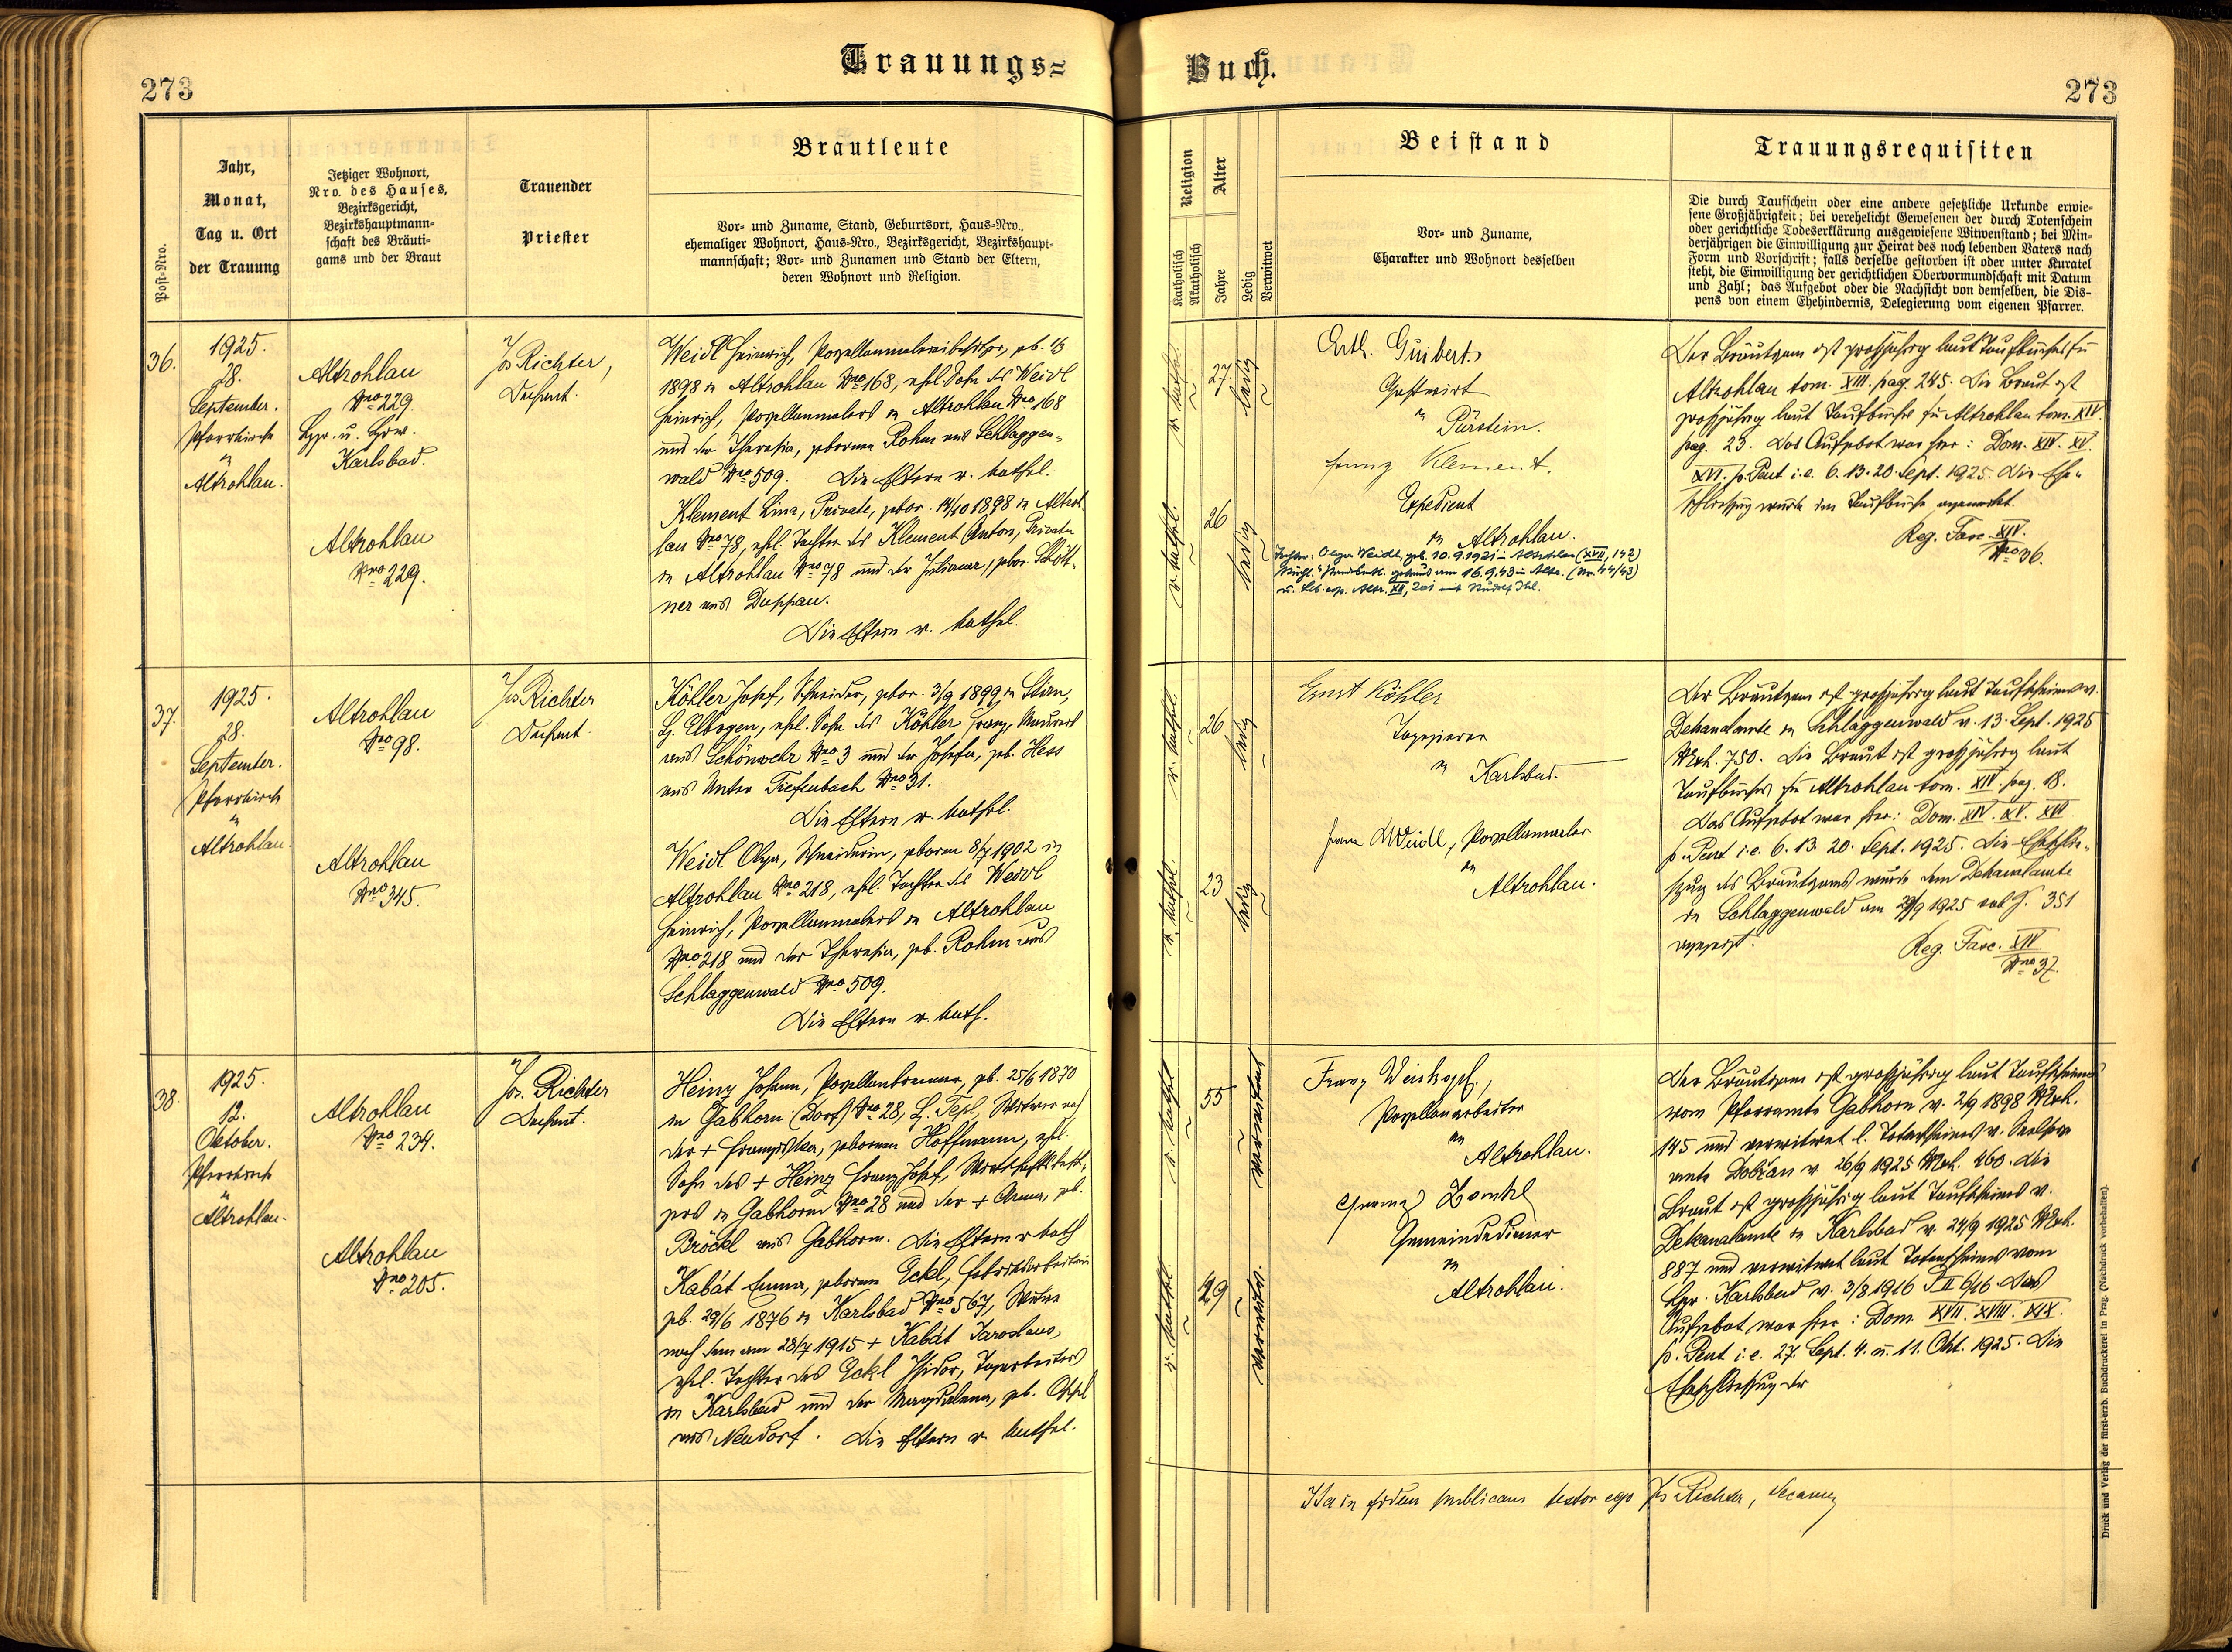 Trauungs=
Buch.
273
273
Post-Nro.
Jahr,
Monat,
Tag u. Ort
der Trauung
Jetziger Wohnort,
Nro. des Hauses,
Bezirksgericht,
Bezirkshauptmann=
schaft des Bräuti=
gams und der Braut
Trauender
Priester
Brautleute
Vor- und Zuname, Stand, Geburtsort, Haus=Nro.,
ehemaliger Wohnort, Haus=Nro., Bezirksgericht, Bezirkshaupt=
mannschaft; Vor- und Zunamen und Stand der Eltern,
deren Wohnort und Religion.
Religion
Katholisch
Akatholisch
Alter
Jahre
Ledig
Verwitwet
Beistand
Vor- und Zuname,
Charakter und Wohnort desselben
Trauungsrequisiten
Die durch Taufschein oder eine andere gesetzliche Urkunde erwie=
sene Großjährigkeit; bei verehelicht Gewesenen der durch Totenschein
oder gerichtliche Todeserklärung ausgewiesene Witwenstand; bei Min=
derjährigen die Einwilligung zur Heirat des noch lebenden Vaters nach
Form und Vorschrift; falls derselbe gestorben ist oder unter Kuratel
steht, die Einwilligung der gerichtlichen Obervormundschaft mit Datum
und Zahl; das Aufgebot oder die Nachsicht von demselben, die Dis=
pens von einem Ehehindernis, Delegierung vom eigenen Pfarrer.
36.
1925.
28.
September.
Pfarrkirche
in
Altrohlau.
Altrohlau
Nro 229.
Karlsbad.
Altrohlau
Nro 229.
Jos Richter,
Dechant.
Weidl Heinrich, geb.
1898 in Altrohlau Nro 168, ehl. Sohn des Weidl
Heinrich, Porzellanmalers in Altrohlau Nro 168
und der Theresia, geborene Rohm aus Schlaggen=
wald Nro 509. Die Eltern r. kathol.
Klement Lina, Private, gebor. 14/10 1898 in Altroh
lau Nro 78, ehl. Tochter des Klement Anton, Private
in Altrohlau Nro 78 und der Juliana, gebor. Schött=
ner aus Duppau.
Die Eltern r. kathol.
r. kathol.
27
ledig
r. kathol.
26
ledig
Guibert
Gastwirt
in
Pürstein.
Franz Klement.
Expedient
in Altrohlau.
Tochter: Olga Weidl, geb. 10.9.1921 in Altrohlau (XVII, 142)
am 16.9.43 in Altr. (Nr. 44/43)
Der Bräutgam ist großjährig laut Taufbuches für
Altrohlau tom. XIII. pag. 245. Die Braut ist
großjährig laut Taufbuches für Altrohlau tom. XIV.
pag. 23. Das Aufgebot war hier: Dom. XIV. XV.
XVI. p. Pent i. e. 6. 13. 20. Sept. 1925. Die Ehe=
schließung wurde im Taufbuche angemerkt.
Reg. Fasc. XIV.
Nro 36.
37.
1925.
28.
September.
Pfarrkirche
in
Altrohlau.
Altrohlau
Nro 98.
Altrohlau
Nro 345.
Jos Richter
Dechant.
Köhler Josef, Schneider, gebor. 3/9 1899 in Stirn,
B. Elbogen, ehel. Sohn des Köhler Franz, Maurers
aus Schönwehr Nro 3 und der Josefa, geb. Hess
aus Unter Tiefenbach Nro 31.
Die Eltern r. kathol.
Weidl Olga, Schneiderin, geboren 8/7 1902 in
Altrohlau Nro 218, ehel. Tochter des Weidl
Heinrich, Porzellanmalers in Altrohlau
Nro 218 und der Theresia, geb. Rohm aus
Schlaggenwald Nro 509.
Die Eltern r. kath.
r. kathol.
26
ledig
r. kathol.
23
ledig
Ernst Köhler
Tapezierer
in Karlsbad.
Weidl, Porzellanmaler
in
Altrohlau.
Der Bräutgam ist großjährig laut Taufscheines v.
Dekanalamte in Schlaggenwald v. 13. Sept. 1925
Nrch. 750. Die Braut ist großjährig laut
Taufbuches für Altrohlau tom. XIV. pag. 18.
Das Aufgebot war hier: Dom. XIV. XV. XVI
p. Pent i. e. 6. 13. 20. Sept. 1925. Die Eheschlie=
ßung des Bräutgams wurde dem Dekanalamte
in Schlaggenwald am 29/9 1925 sub G. 351
angezeigt.
Reg. Fasc. XIV
Nro 37.
38.
1925.
12.
Oktober.
Pfarrkirche
in
Altrohlau.
Altrohlau
Nro 234.
Altrohlau
Nro 205.
Jos. Richter
Dechant.
Heinz Johann, Porzellanbrenner, geb. 25/6 1870
in Gabhorn (Dorf) Nro 28, B. Tepl, Witwer nach
der + Franziska, geborenen Hoffmann, ehl.
Sohn des + Heinz Franz Josef, Wirtschaftsbesit=
zers in Gabhorn Nro 28 und der + Anna, geb.
Bröckl aus Gabhorn. Die Eltern r. kath
Kabát Emma, geborene Eckl, Fabriksarbeiterin
geb. 29/6 1876 in Karlsbad Nro 567, Witwe
nach dem am 28/7 1915 + Kabát Jaroslaus,
ehel. Tochter des Eckl Isidor, Tagarbeiters
in Karlsbad und der Magdalena, geb.
aus Neudorf. Die Eltern r. kathol.
r. kathol
55
verwitwet
r. kathol.
49
verwitw.
Franz Weiskopf,
Porzellanarbeiter
in
Altrohlau.
Gemeindediener
in
Altrohlau.
Der Bräutgam ist großjährig laut Taufscheines
vom Pfarramte Gabhorn v. 2/9 1898 Nrch.
145 und verwitwet l. Totenscheines v. Seelsorge
amte v. 26/9 1925 Nrch. 460. Die
Braut ist großjährig laut Taufscheines v.
Dekanalamte in Karlsbad v. 24/9 1925 Nrch.
887 und verwitwet laut Totenscheines vom
Karlsbad v. 3/8 1916 Das
Aufgebot war hier: Dom. XVII. XVIII. XIX.
p. Pent i. e. 27. Sept. 4. u. 11. Okt. 1925. Die
Eheschließung der
Ita in fidem publicam testor ego Jos Richter, decanus
Druck und Verlag der fürst-erzb. Buchdruckerei in Prag. (Nachdruck vorbehalten).